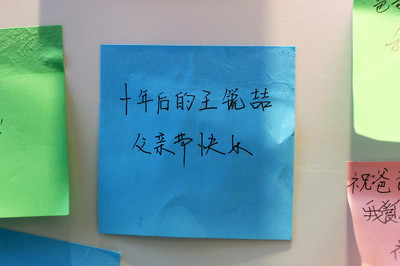 十年后的王锐喆
父亲节快乐
祝爸
我爱